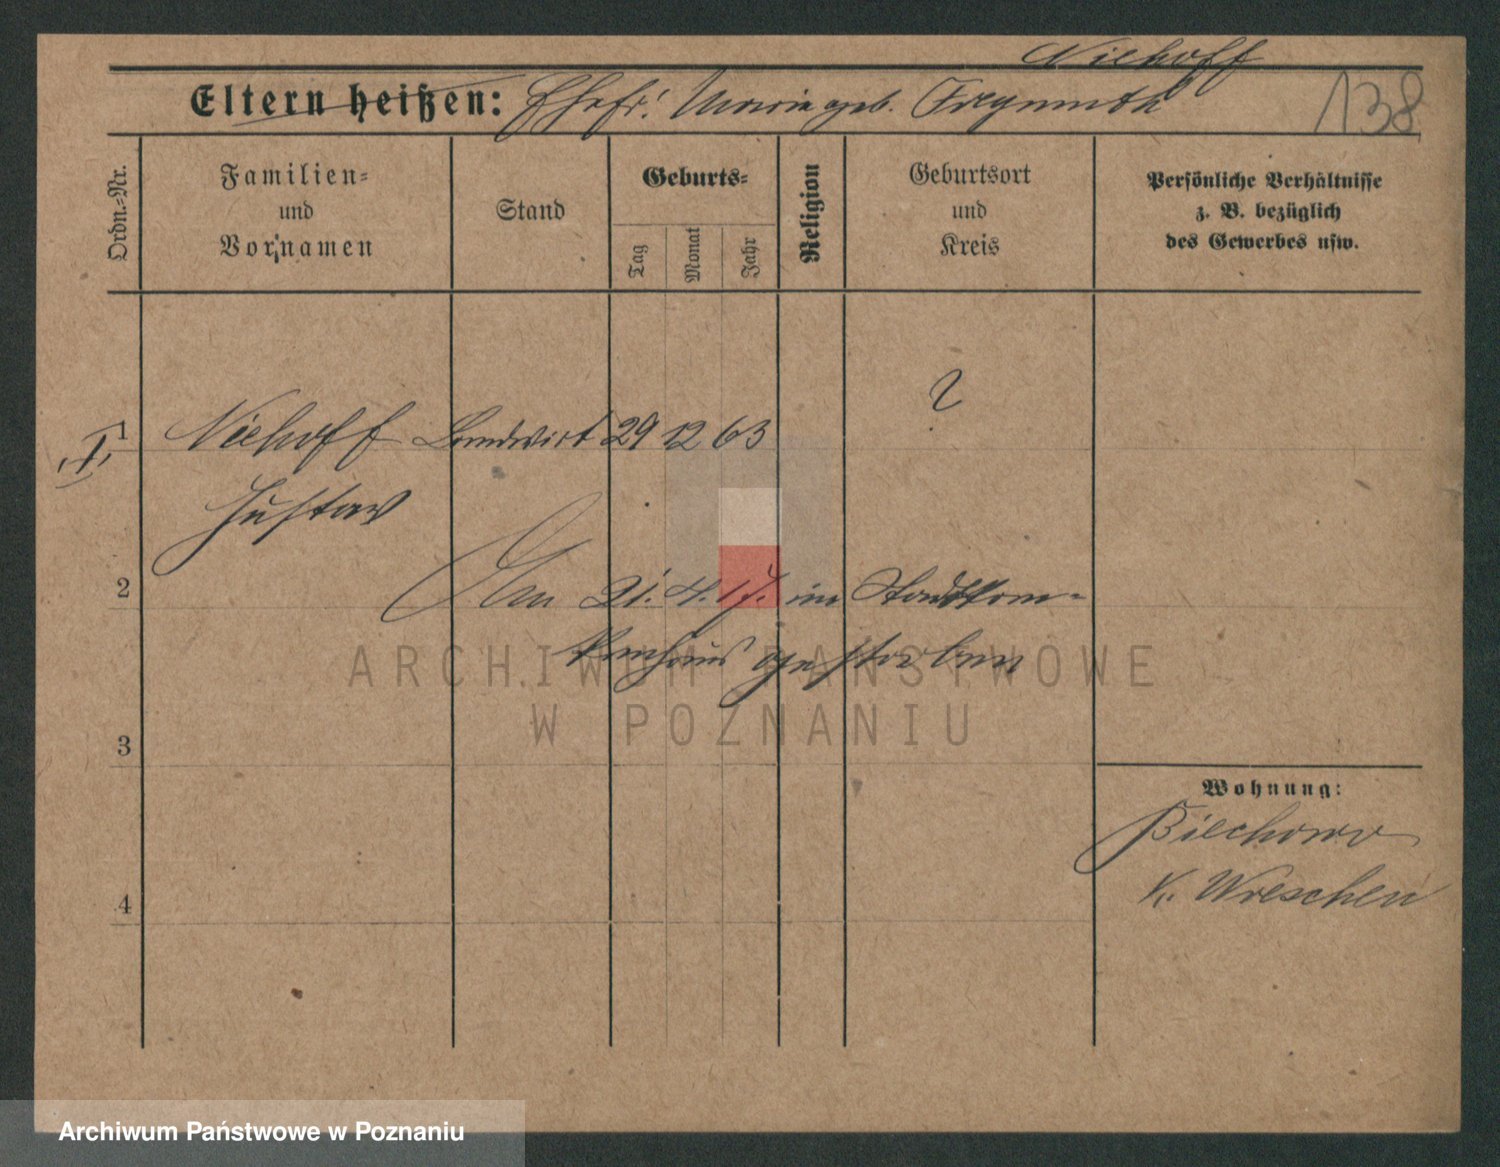 Niehoff
Eltern heißen: Ehefr: Maria geb. Freymuth
138
Ordn.-Nr.
Familien-
und
Vornamen
Stand
Geburts-
Tag
Monat
Jahr
Religion
Geburtsort
und
Kreis
Persönliche Verhältnisse
z. B. bezüglich
des Gewerbes usw.
?
1 Niehoff Landwirt 29 12 63
Gustav
2 Am 21. 4. 17. im Stadtkran-
kenhaus gestorben
ARCHIWUM PAŃSTWOWE
W POZNANIU
3
Wohnung:
Biechowo
K. Wreschen
4
Archiwum Państwowe w Poznaniu